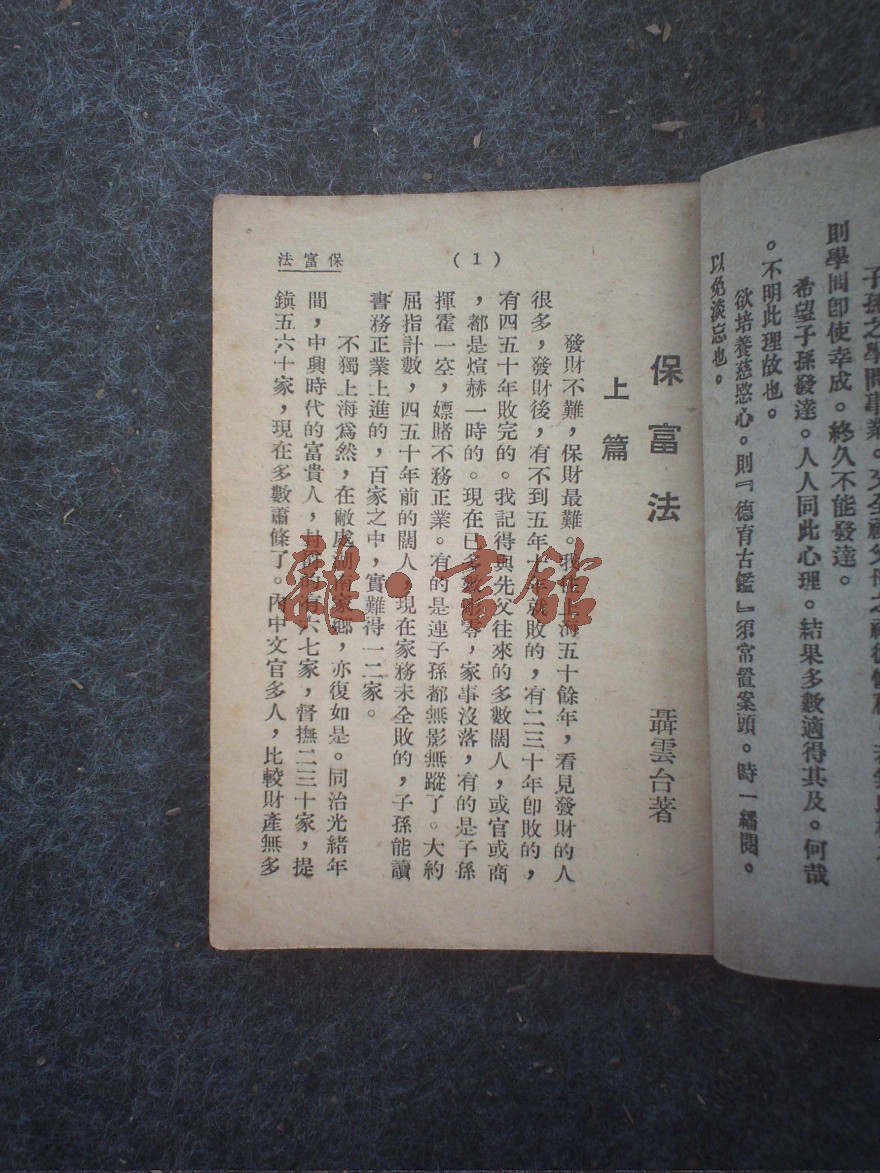 子孫之學問事業。
則學問卽使幸成。終久不能發達。
希望子孫發達。人人同此心理。結果多數適得其及。何哉
。不明此理故也。
欲培養慈愍心。則『德育古鑑』須常置案頭。時一繙閱。
以免淡忘也。
保富法
上篇
聶雲台著
發財不難，保財最難。我住上海五十餘年，看見發財的人
很多，發財後，有不到五年十年就敗的，有二三十年卽敗的，
有四五十年敗完的。我記得與先父往來的多數闊人，或官或商
，都是煊赫一時的。現在已多數凋零，家事沒落，有的是子孫
揮霍一空，嫖賭不務正業。有的是連子孫都無影無蹤了。大約
屈指計數，四五十年前的闊人，現在家務未全敗的，子孫能讀
書務正業上進的，百家之中，實難得一二家。
不獨上海爲然，在敝處湖南家鄉，亦復如是。同治光緒年
間，中興時代的富貴人，封爵的有六七家，督撫二三十家，提
鎮五六十家，現在多數蕭條了。內中文官多人，比較財產無多
(1)
保富法
雜·書館